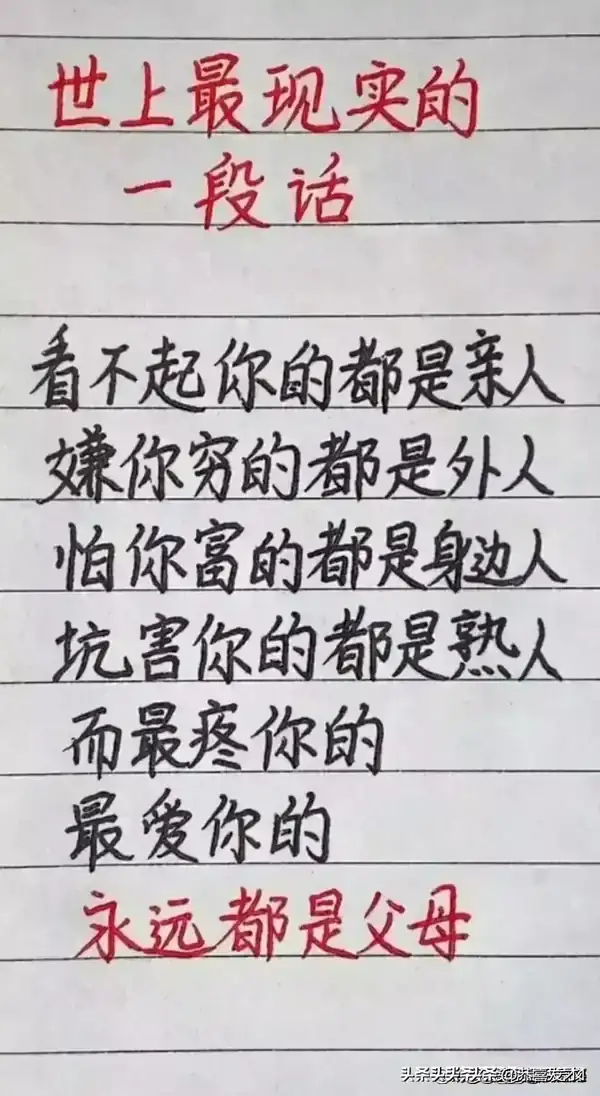 世上最现实的
一段话
看不起你的都是亲人
嫌你穷的都是外人
怕你富的都是身边人
坑害你的都是熟人
而最疼你的
最爱你的
永远都是父母